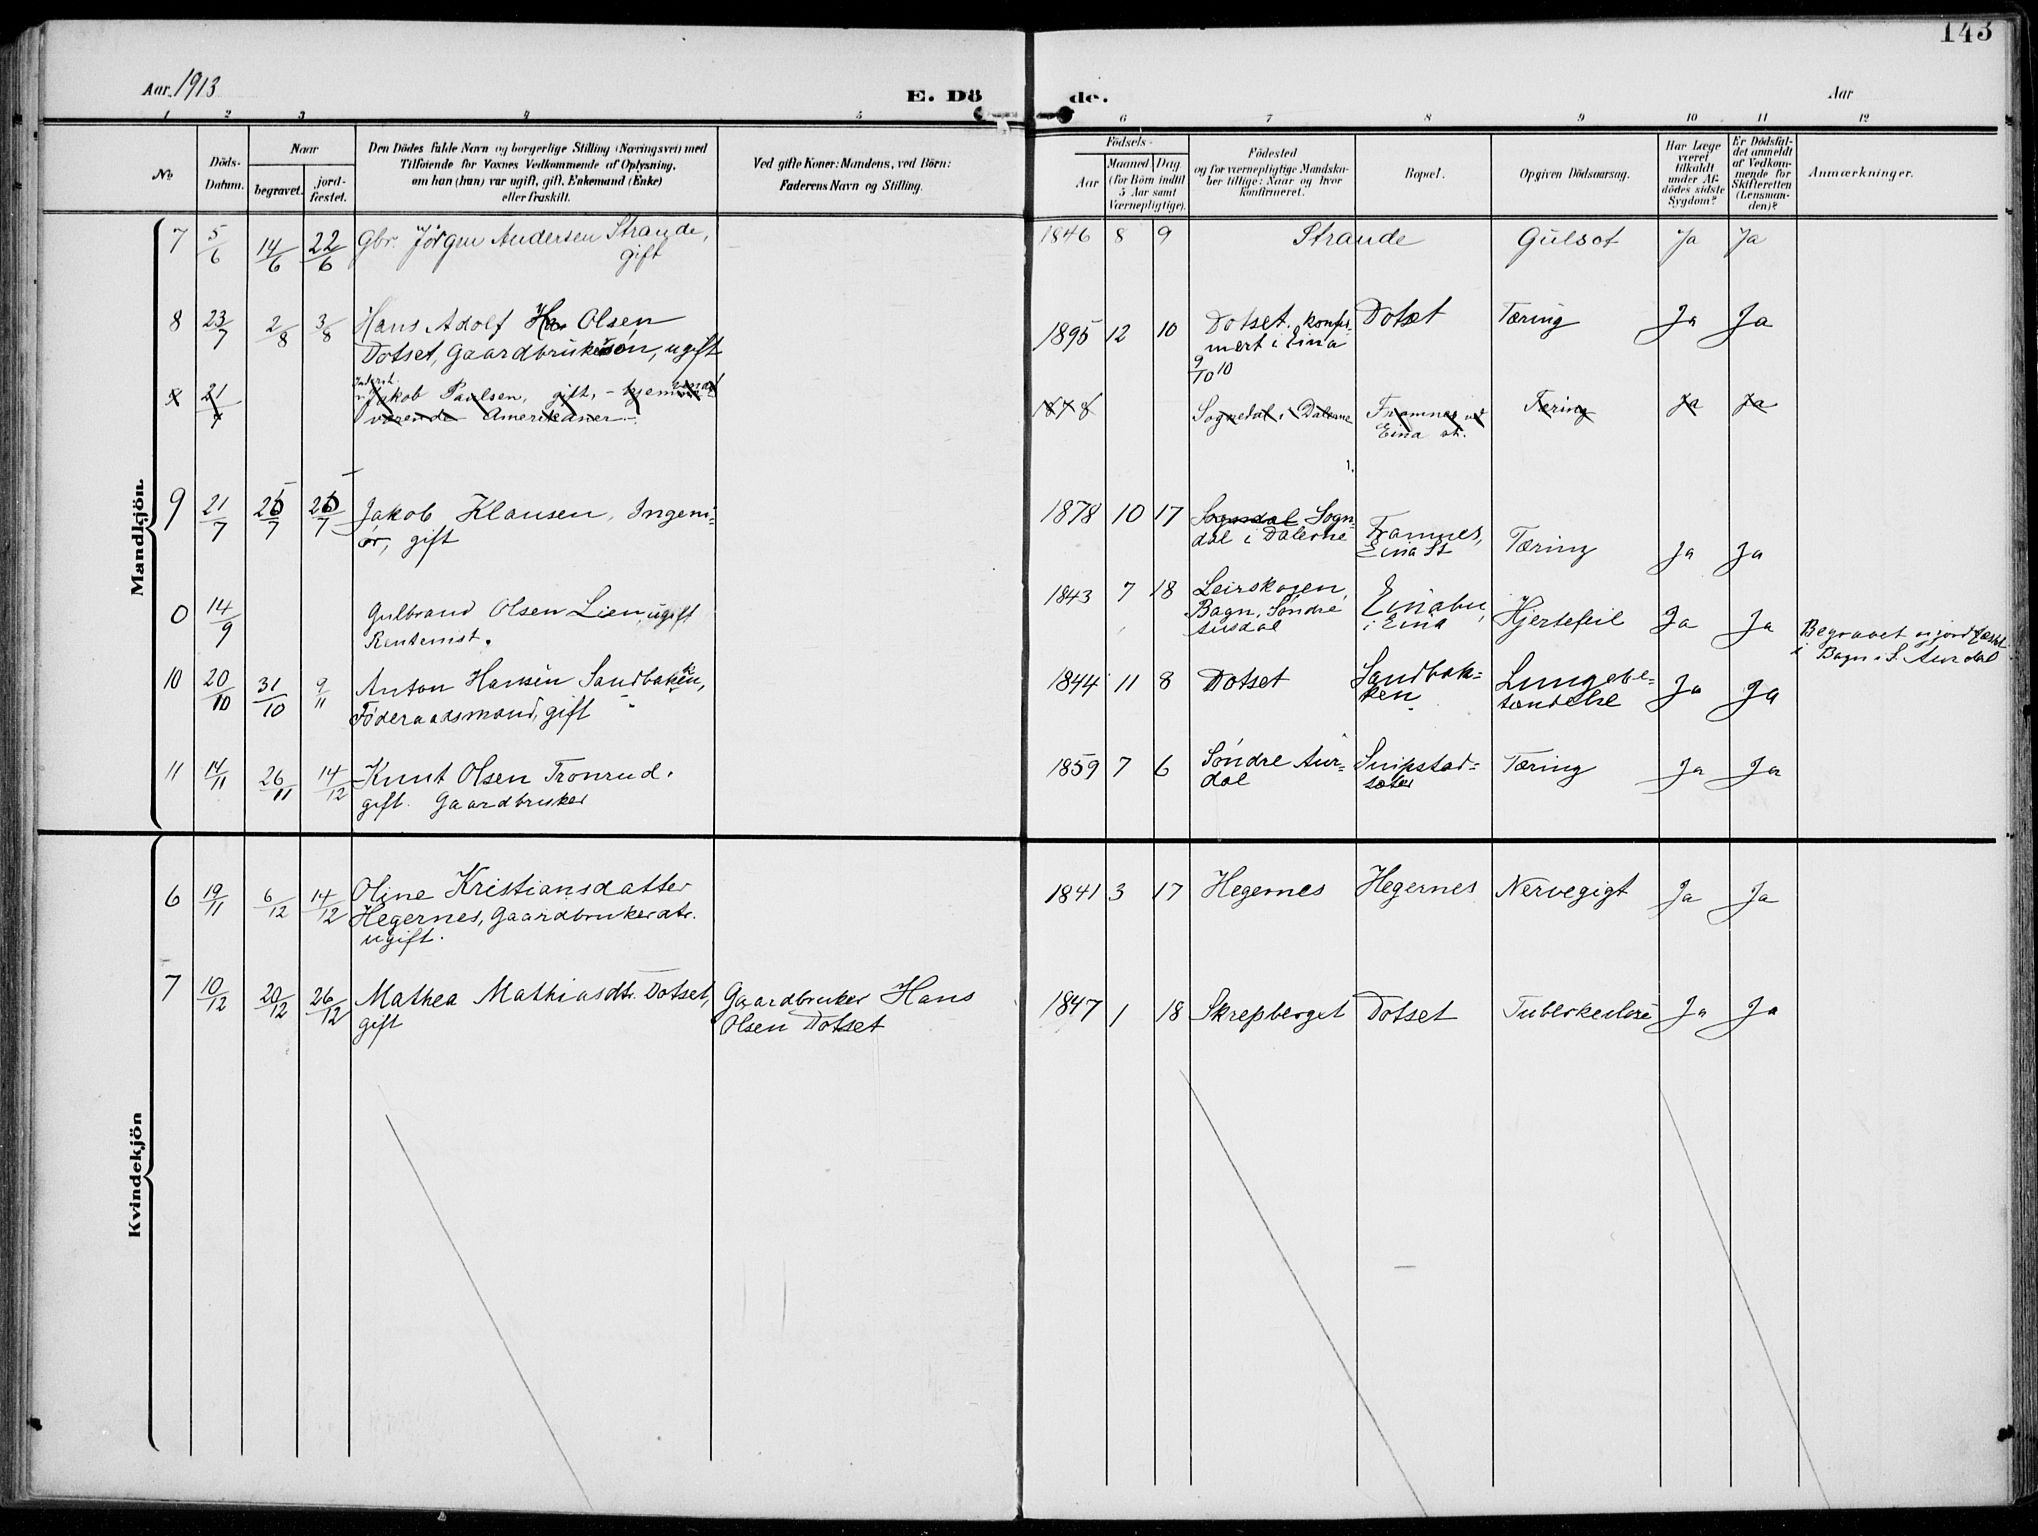 143
Aar 1913
E. Dö
de.
Aar
1 2 3 4 5 6 7 8 9 10 11 12
No
Döds-
Datum.
Naar
begravet.
jord-
fæstet.
Den Dödes fulde Navn og borgerlige Stilling (Næringsvei) med
Tilföiende for Voxnes Vedkommende af Oplysning,
om han (hun) var ugift, gift, Enkemand (Enke)
eller fraskilt.
Ved gifte Koner: Mandens, ved Börn:
Faderens Navn og Stilling.
Födsels-
Aar
Maaned
Dag
(for Börn indtil
5 Aar samt
Værnepligtige).
Födested
og for værnepligtige Mandska-
ber tillige: Naar og hvor
konfirmeret.
Bopæl.
Opgiven Dödsaarsag.
Har Læge
været
tilkaldt
under Af-
dödes sidste
Sygdom?
Er Dödsfal-
det anmeldt
af Vedkom-
mende for
Skifteretten
(Lensman-
den)?
Anmærkninger.
Mandkjön.
7 5/6 14/6 22/6 Gbr. Jörgen Andersen Strande, 1846 8 9 Strande Gulsot Ja Ja
gift
8 23/7 2/8 3/8 Hans Adolf Olsen 1895 12 10 Dotset. konfir- Dotset Tæring Ja Ja
Dotset, Gaardbrukersön, ugift mert i Eina
9/10 10
21/7 Jakob Paulsen, gift, - hjemme- 1878 Sogndal i Dalerne Framnes ved Tæring Ja Ja
værende Amerikaner - Eina st.
9 21/7 /7 /7 Jakob Klausen, Ingeni- 1878 10 17 Sogndal Sogn- Framnes, Tæring Ja Ja
ör, gift dal i Dalerne Eina St
0 14/9 Gulbrand Olsen Lien, ugift 1843 7 18 Leirskogen, Einabu, Hjertefeil Ja Ja Begravet og jordfæstet
Rentenist. Bagn, Söndre i Eina i Bagn i S. Aurdal
Aurdal
10 20/10 31/10 9/11 Anton Hansen Sandbakken, 1844 11 8 Dotset Sandbak- Lungebe- Ja Ja
Föderaadsmand, gift ken tændelse
11 14/11 26/11 14/12 Knut Olsen Tronrud. 1859 7 6 Söndre Aur- Snipstad- Tæring Ja Ja
gift. Gaardbruker dal sæter
Kvindekjön
6 19/11 6/12 14/12 Oline Kristiansdatter 1841 3 17 Hegernes Hegernes Nervegigt Ja Ja
Hegernes, Gaardbrukerdtr.
ugift.
7 10/12 20/12 26/12 Mathea Mathiasdtr. Dotset, Gaardbruker Hans 1847 1 18 Skrepberget Dotset Tuberkulose Ja Ja
gift Olsen Dotset